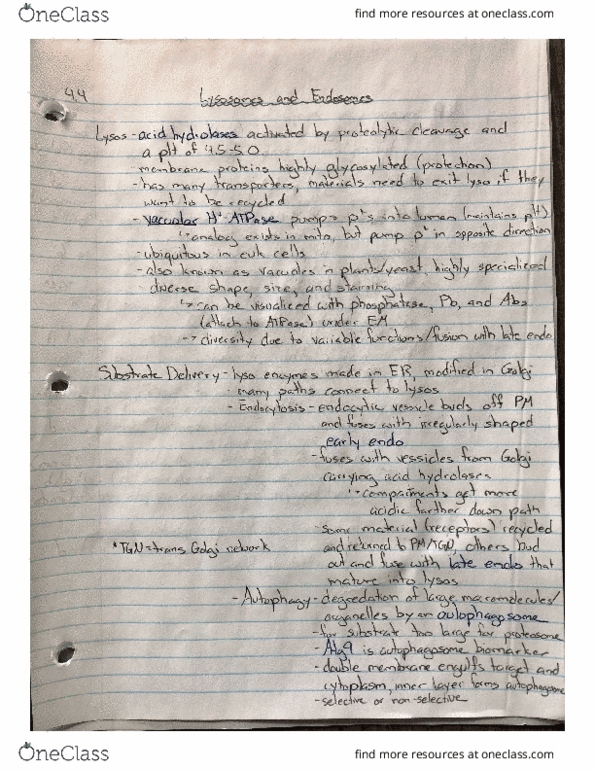 OneClass
find more resources at oneclass.com
4.4
Lysosomes and Endosomes
Lysos - acid hydrolases activated by proteolytic cleavage and
a pH of 4.5-5.0
- membrane proteins highly glycosylated (protection)
- has many transporters, materials need to exit lyso if they
want to be recycled
- vacuolar H+ ATPase pumps p+s into lumen (maintains pH)
↳ analog exists in mito, but pump p+ in opposite direction
- ubiquitous in euk cells
- also known as vacuoles in plants/yeast, highly specialized
- diverse shape, size, and staining
↳ can be visualized with phosphatase, Pb, and Abs
(attach to ATPase) under EM
↳ diversity due to variable functions/fusion with late endo
Substrate Delivery - lyso enzymes made in ER, modified in Golgi
- many paths connect to lysos
- Endocytosis - endocytic vessicle buds off PM
and fuses with irregularly shaped
early endo
- fuses with vessicles from Golgi
carrying acid hydrolases
↳ compartments get more
acidic farther down path
- some material (receptors) recycled
*TGN = trans Golgi network
and returned to PM/TGN*, others bud
out and fuse with late endo that
mature into lysos
- Autophagy - degredation of large macromolecules/
organelles by an autophagosome
- for substrate too large for proteosome
- Atg9 is autophagosome biomarker
- double membrane engulfs target and
cytoplasm, inner layer forms autophagosome
- selective or non-selective
OneClass
find more resources at oneclass.com